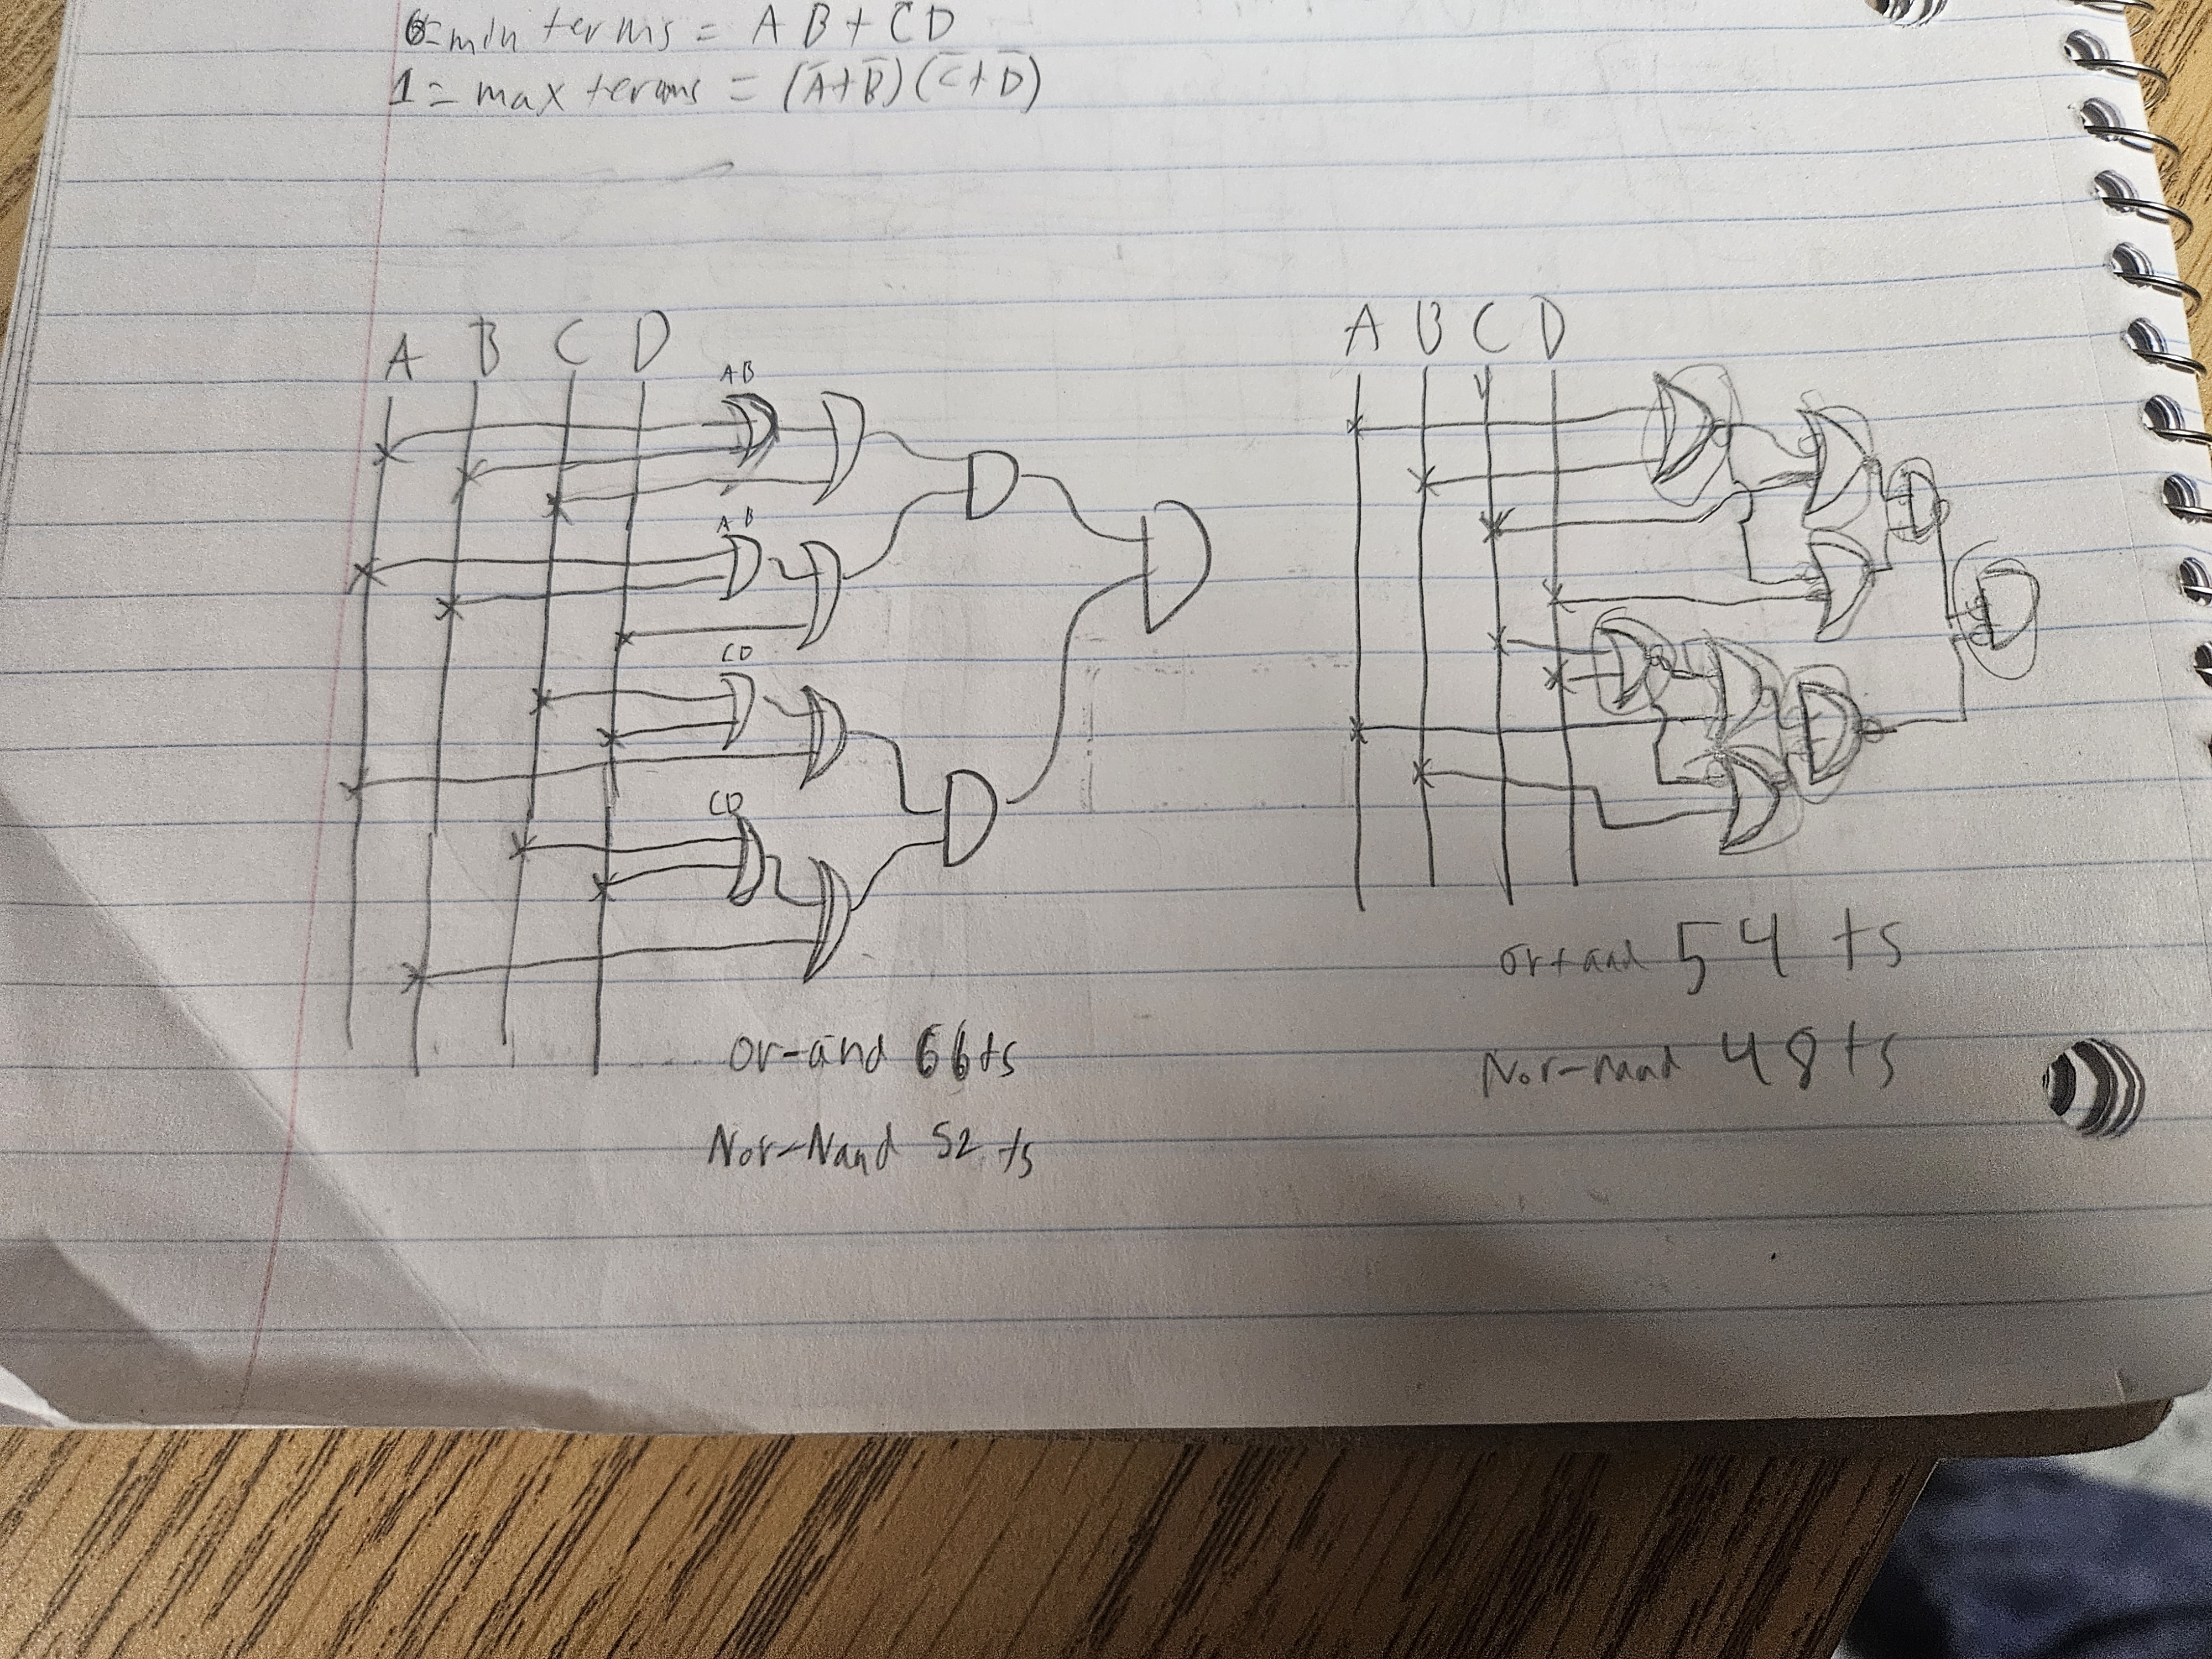 0=min terms = A B + C D
1 = max terms = (A̅+B̅)(C̅+D̅)
A B C D
AB
AB
CD
CD
or-and 66ts
Nor-Nand 52 ts
A B C D
or+and 54 ts
Nor-nand 48 ts